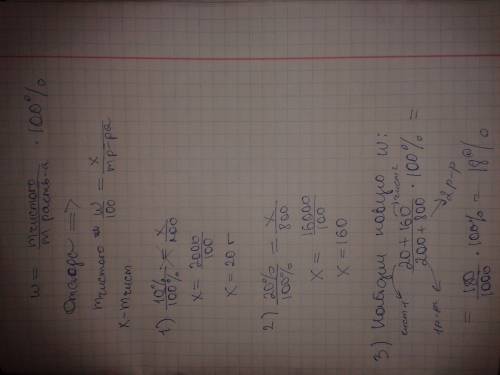 w = m чистого / m раств-а · 100%
Отсюда =>
m чистого w / 100 = x / m р-ра
x - m чист
1) 10% / 100% = x / 200
x = 2000 / 100
x = 20 г
2) 20% / 100% = x / 800
x = 16000 / 100
x = 160
3) Найдём новую w:
20 + 160 / 200 + 800 · 100% =
= 180 / 1000 · 100% = 18%